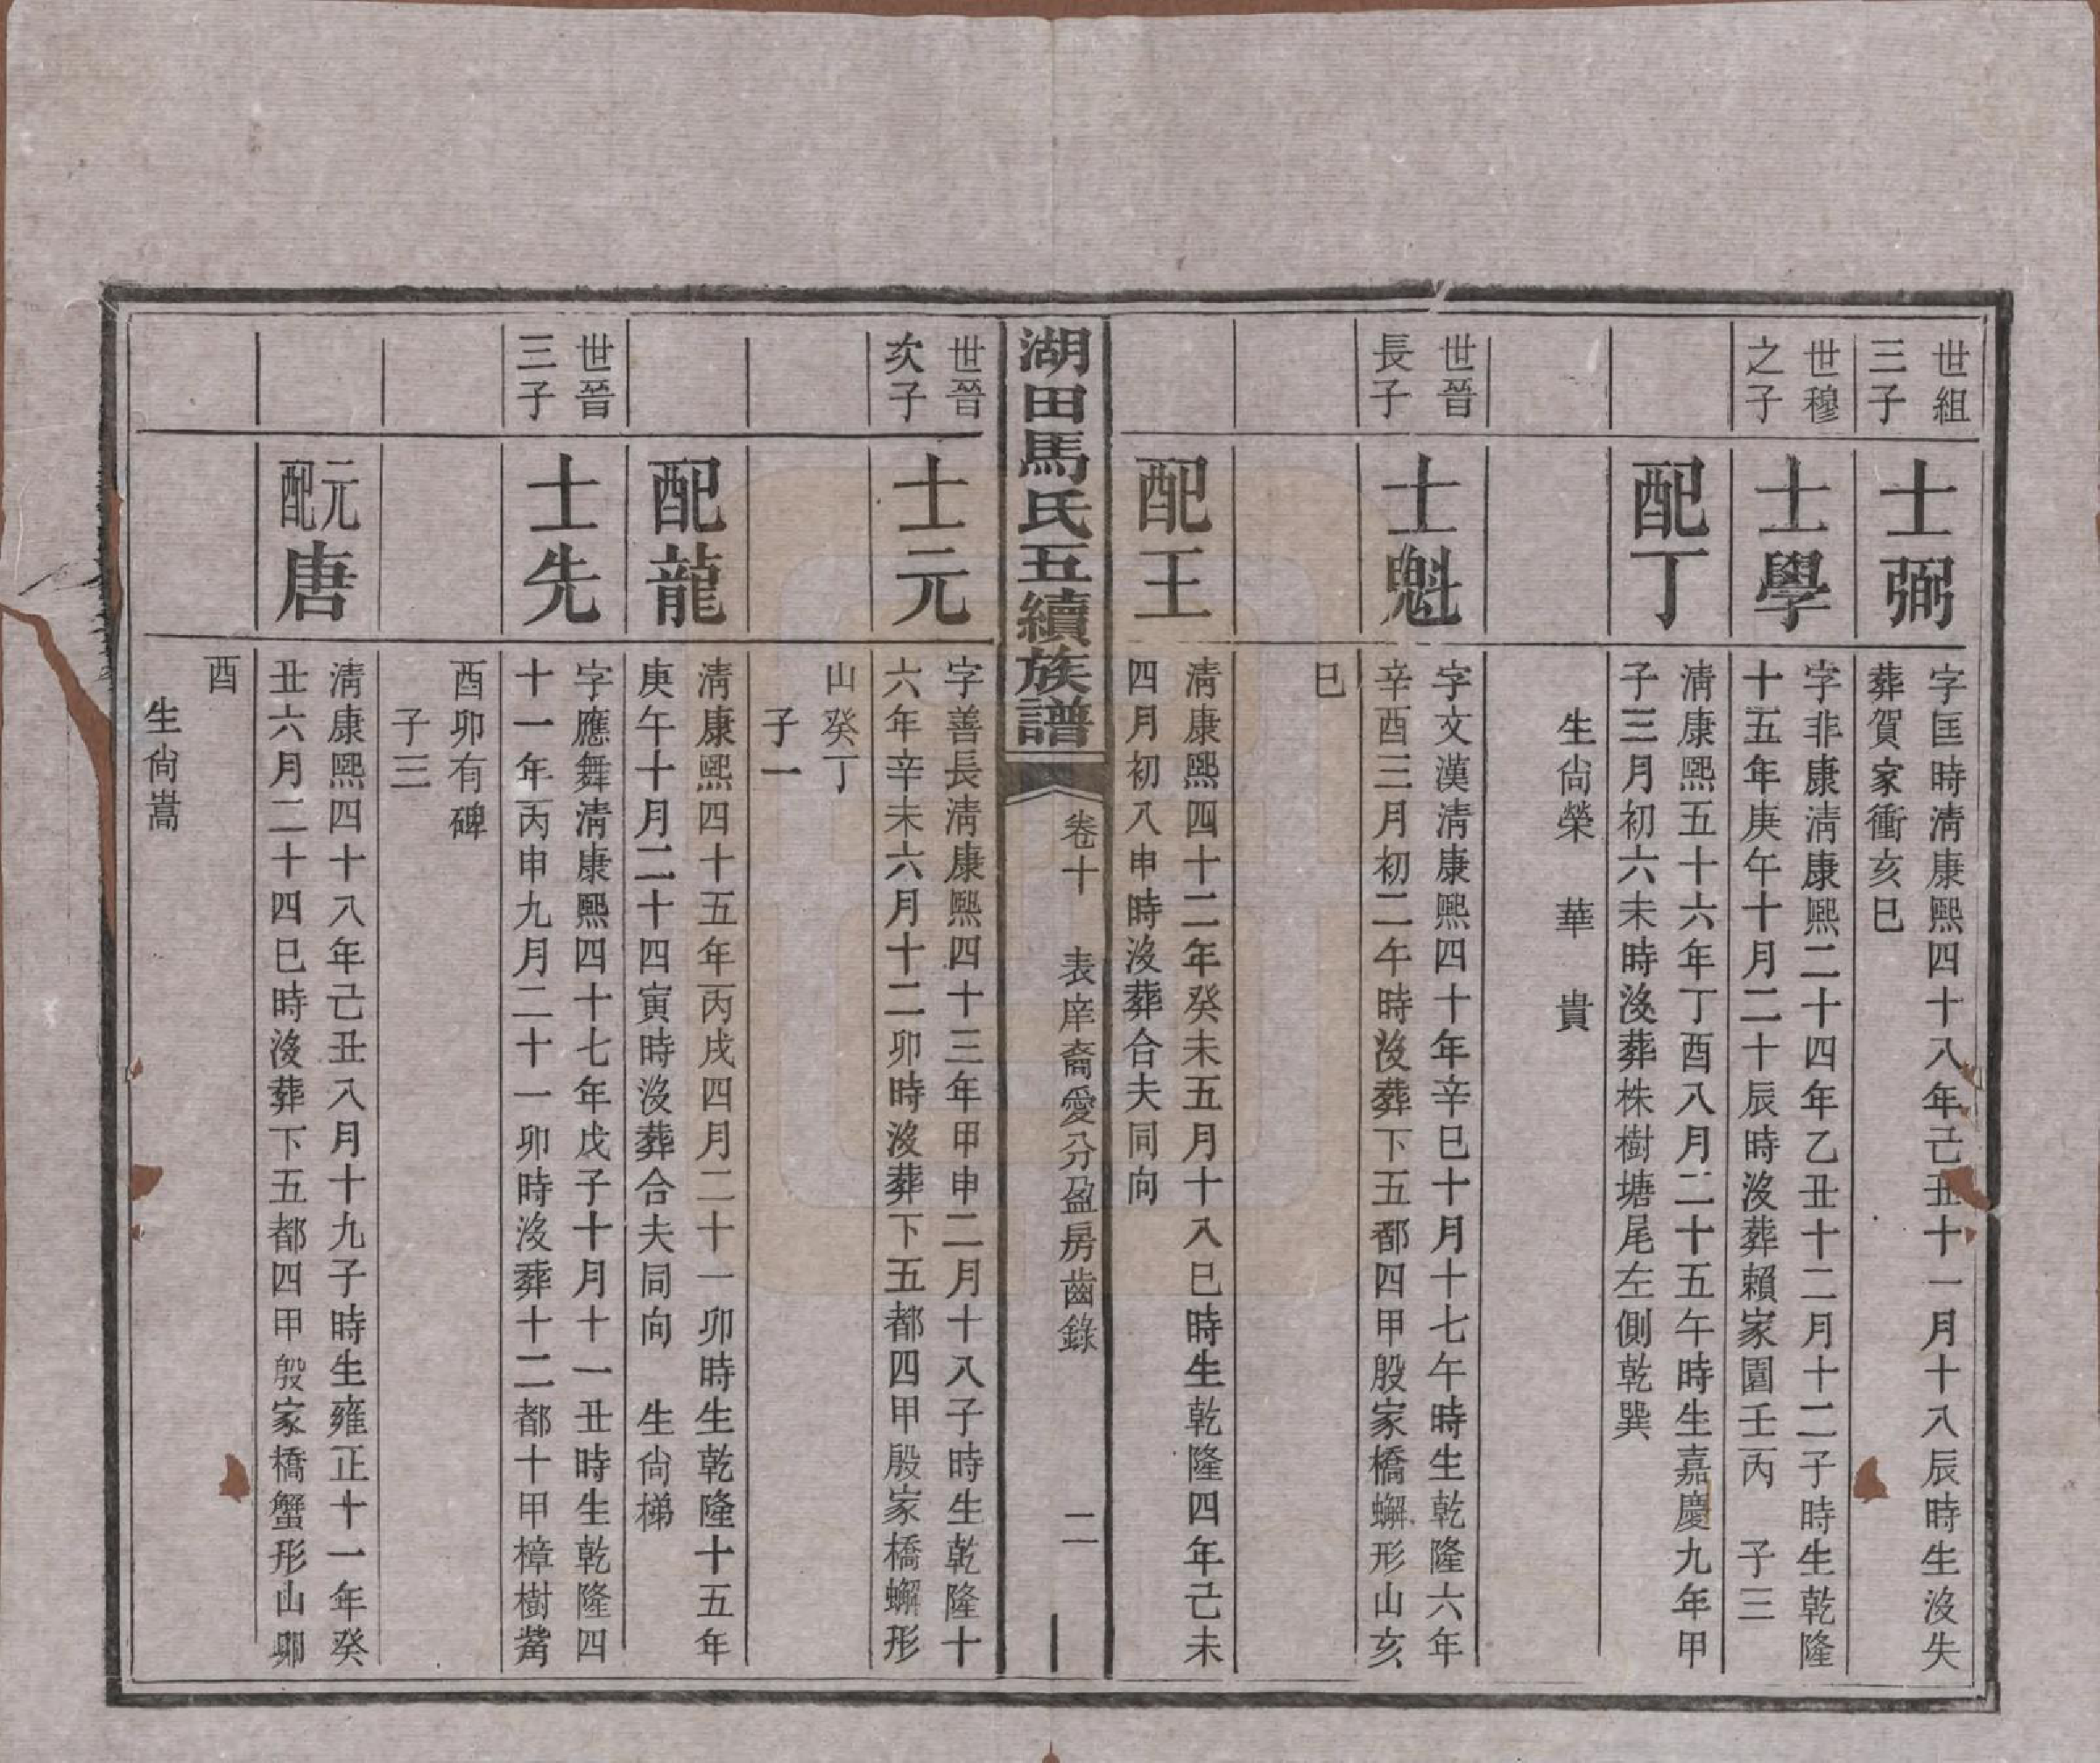 世組
三子
士弼
字匡時淸康熙四十八年己丑十一月十八辰時生沒失
葬賀家衝亥巳
世穆
之子
士學
字非康淸康熙二十四年乙丑十二月十二子時生乾隆
十五年庚午十月二十辰時沒葬賴家園壬丙　子三
配丁
淸康熙五十六年丁酉八月二十五午時生嘉慶九年甲
子三月初六未時沒葬株樹塘尾左側乾巽
生尙榮　華　貴
世晉
長子
士魁
字文漢淸康熙四十年辛巳十月十七午時生乾隆六年
辛酉三月初二午時沒葬下五都四甲殷家橋蠏形山亥
巳
配王
淸康熙四十二年癸未五月十八巳時生乾隆四年己未
四月初八申時沒葬合夫同向
湖田馬氏五續族譜
卷十　表庠裔愛分盈房齒錄　二
世晉
次子
士元
字善長淸康熙四十三年甲申二月十八子時生乾隆十
六年辛未六月十二卯時沒葬下五都四甲殷家橋蠏形
山癸丁
子一
配龍
淸康熙四十五年丙戌四月二十一卯時生乾隆十五年
庚午十月二十四寅時沒葬合夫同向　生尙梯
世晉
三子
士先
字應舞淸康熙四十七年戊子十月十一丑時生乾隆四
十一年丙申九月二十一卯時沒葬十二都十甲樟樹
酉卯有碑
子三
元配唐
淸康熙四十八年己丑八月十九子時生雍正十一年癸
丑六月二十四巳時沒葬下五都四甲殷家橋蟹形山卯
酉
生尙嵩